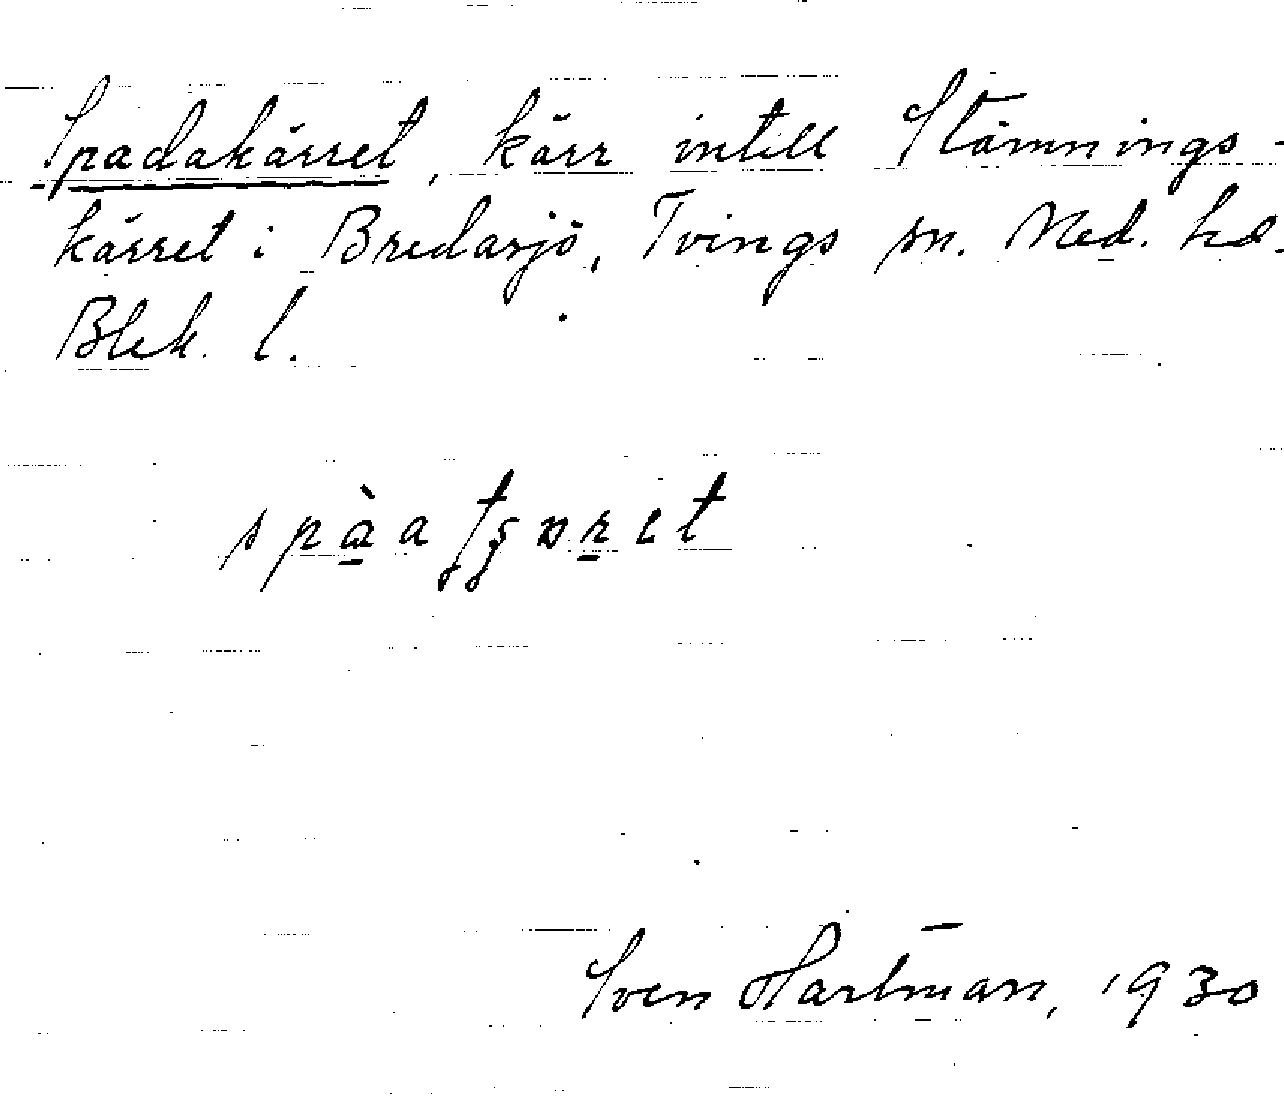 Spadakärret, kärr intill Stämnings-
kärret i Bredasjö, Tvings sn. Med. hd.
Blek. l.
Sven Hartman, 1930